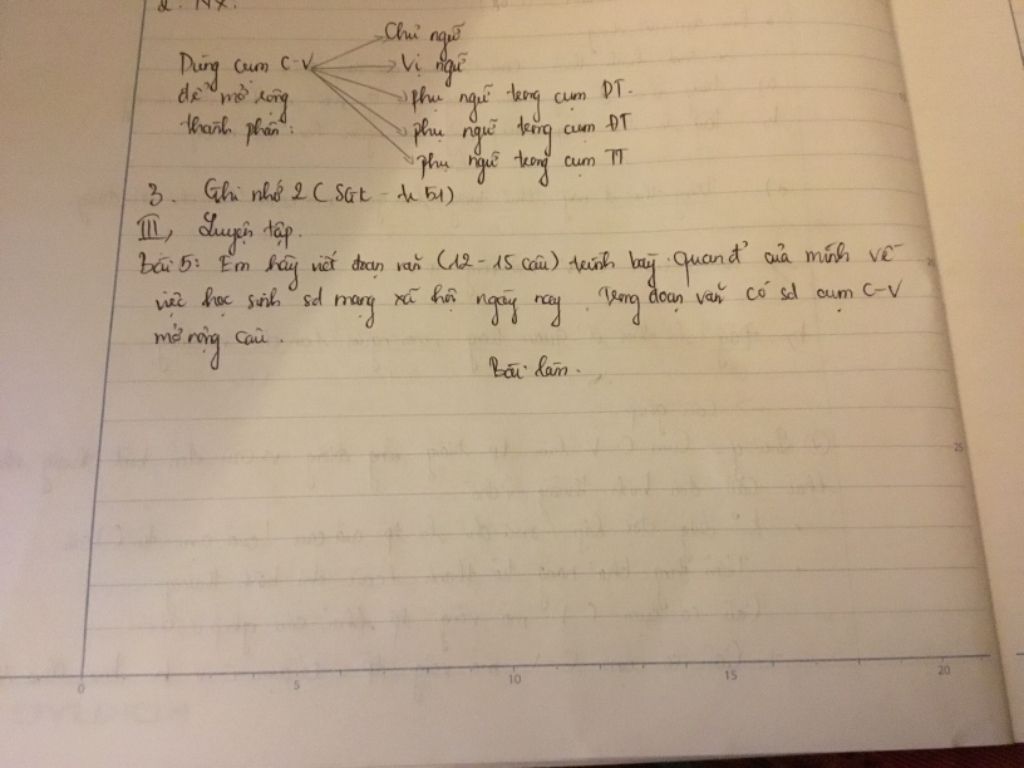 2. NX:
Chủ ngữ
Dùng cụm C-V
Vị ngữ
để mở rộng
phụ ngữ trong cụm DT.
thành phần:
phụ ngữ trong cụm ĐT
phụ ngữ trong cụm TT
3. Ghi nhớ 2 (SGK - tr 51)
III, Luyện tập.
Bài 5: Em hãy viết đoạn văn (12 - 15 câu) trình bày quan đ' của mình về
việc học sinh sd mạng xã hội ngày nay. Trong đoạn văn có sd cụm C-V
mở rộng câu.
Bài làm.
25
0 5 10 15 20